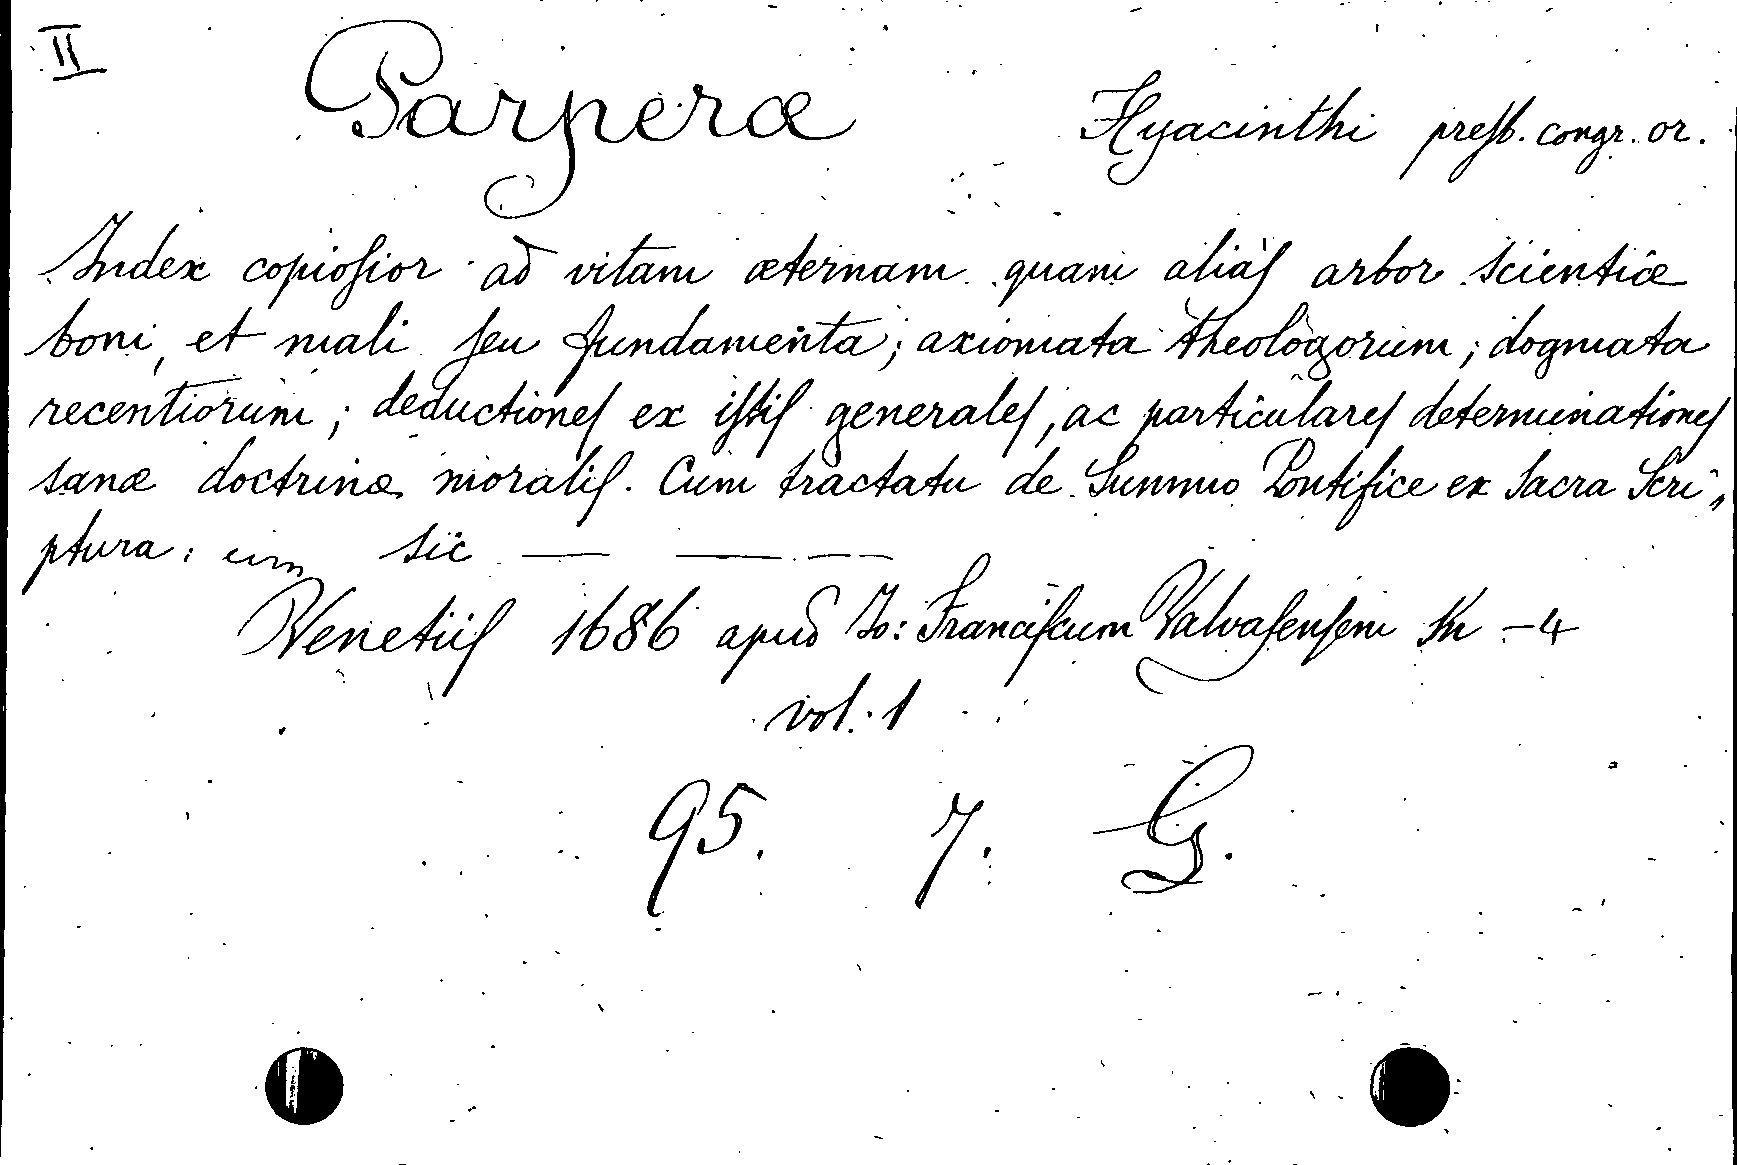 II
Parperæ Hyacinthi preſb. congr. or.
Index copioſior ad vitam æternam quam aliàſ arbor scientiæ
boni, et mali ſeu fundamenta; axiomata theologorum; dogmata
recentiorum; deductioneſ ex iſtiſ generaleſ, ac particulareſ determinationeſ
sanæ doctrinæ moraliſ. Cum tractatu de Summo Pontifice ex Sacra Scri„
ptura: um sic — — —
Venetiiſ 1686 apud Jo: Franciſcum Valvaſenſem In -4
vol. 1
95. 7. G.